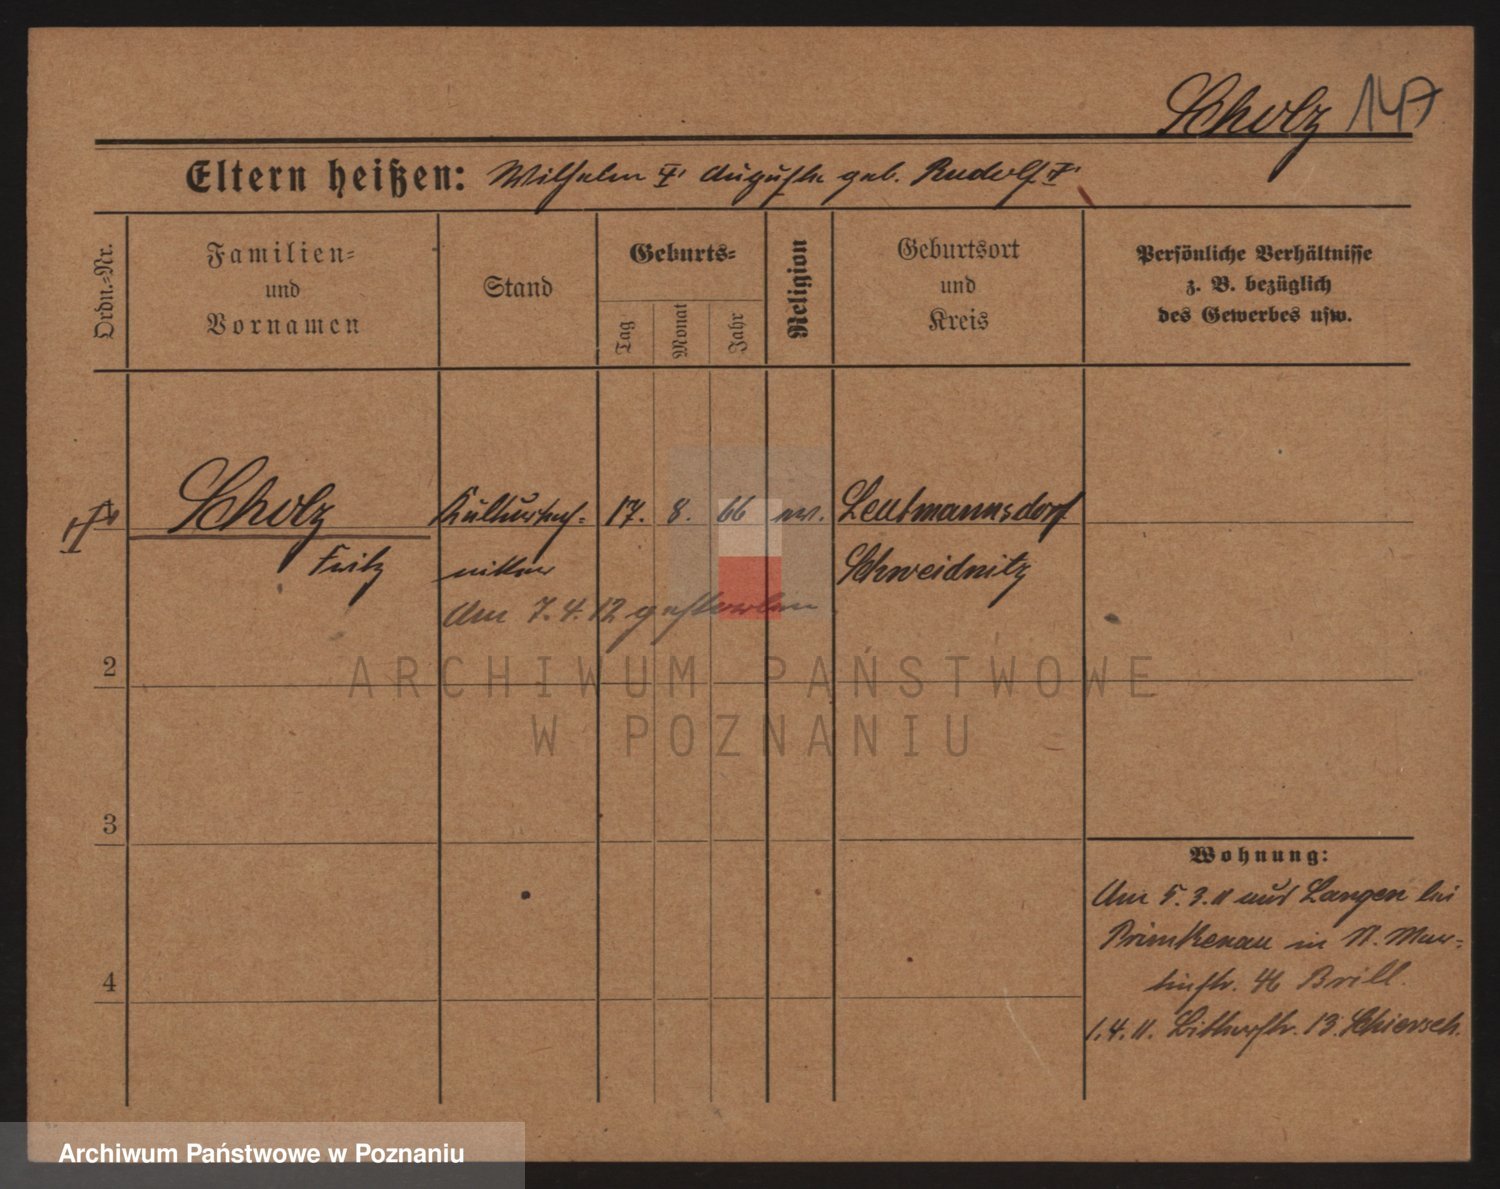 Scholz 147
Eltern heißen: Wilhelm † Auguste geb. Rudolf †
Ordn.=Nr.
Familien=
und
Vornamen
Stand
Geburts=
Tag
Monat
Jahr
Religion
Geburtsort
und
Kreis
Persönliche Verhältnisse
z. B. bezüglich
des Gewerbes usw.
† Scholz Kulturtech= 17. 8. 66 ev. Leutmannsdorf
Fritz niker Schweidnitz
Am 7. 4. 12 gestorben
2
3
4
Wohnung:
Am 5. 3. 11 aus Langen bei
Primkenau in St. Mar=
tinstr. 46 Brill.
1. 4. 11. Ritterstr. 13. Schiersch.
ARCHIWUM PAŃSTWOWE
W POZNANIU
Archiwum Państwowe w Poznaniu